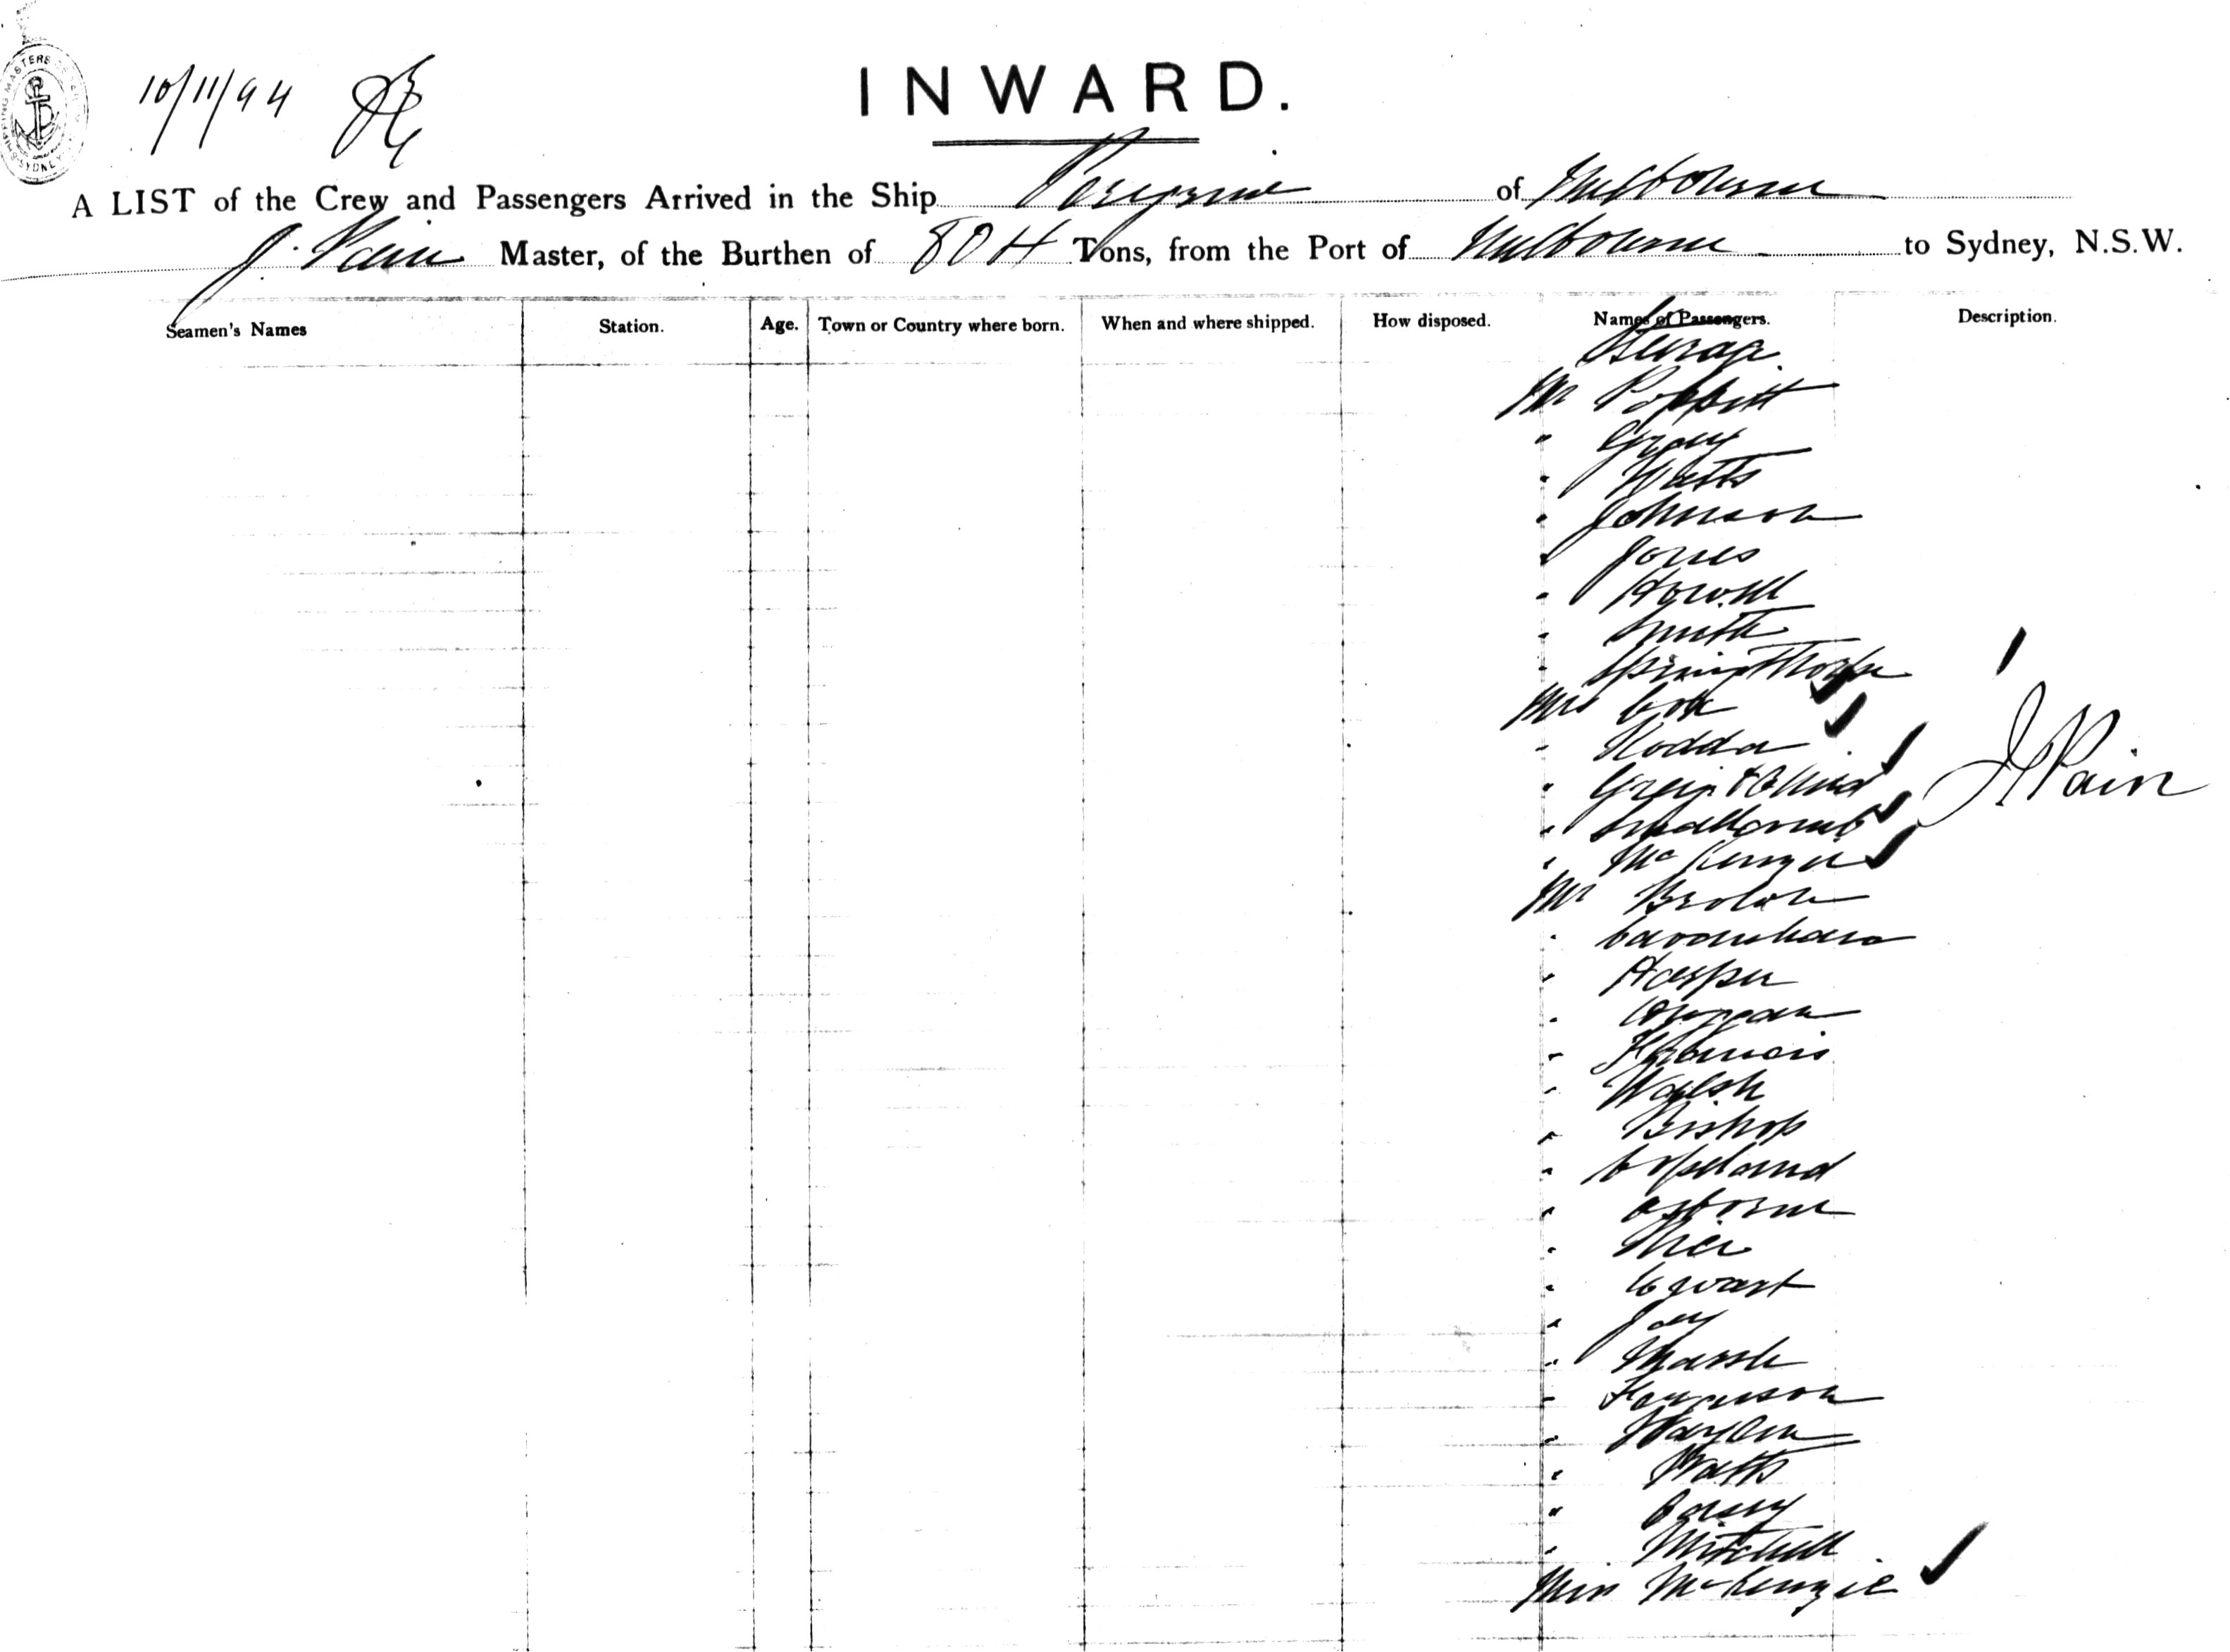 SHIPPING MASTERS SYDNEY
10/11/94
INWARD.
A LIST of the Crew and Passengers Arrived in the Ship of Melbourne
J. Pain Master, of the Burthen of 804 Tons, from the Port of Melbourne to Sydney, N.S.W.
Seamen's Names Station. Age. Town or Country where born. When and where shipped. How disposed. Names of Passengers. Description.
Steerage
Mr
" Gray
" Watts
" Johnson
" Jones
" Howell
" Smith
" Springthorpe
Mrs Cox
" Rodda
" Greig & Child
" Smallcomb
" McKenzie
Mr Brown
" Cavanhar
" Harper
"
" Francis
" Walsh
" Bishop
" Copeland
" Osborne
"
" Ewart
" Joy
" Marsh
"
"
" Watts
" Casey
" Mitchell
Miss McKenzie
J Pain